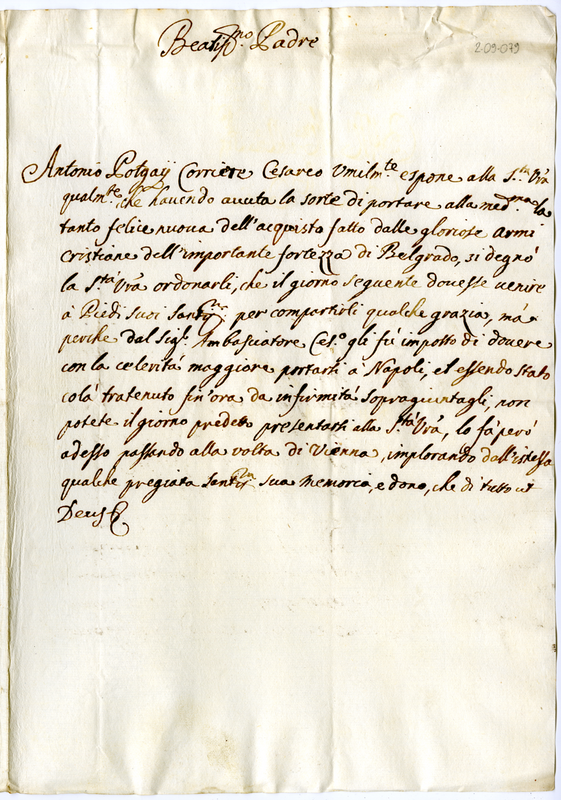 Beatiss.mo Padre
2-09-079
Antonio Potgaÿ Corriere Cesareo Umilm.te espone alla S.tà V'ra
qualm.te che havendo avuta la sorte di portare alla med.ma la
tanto felice nuova dell'acquisto fatto dalle gloriose armi
cristiane dell'importante fortezza di Belgrado, si degnò
la S.tà V'ra ordonarli, che il giorno seguente dovesse venire
à Piedi suoi Sant.mi per compartirli qualche grazia, mà
perche dal Sig.r Ambasciatore Ces.o gli fù imposto di dovere
con la celerità maggiore portarsi a Napoli, et essendo stato
colà tratenuto fin'ora da infirmità sopragiuntagli, non
potete il giorno predetto presentarsi alla S.tà V'ra, lo fà però
adesso passando alla volta di Vienna, implorando dall'istessa
qualche pregiata sua memoria, e dono, che di tutto ut
Deus